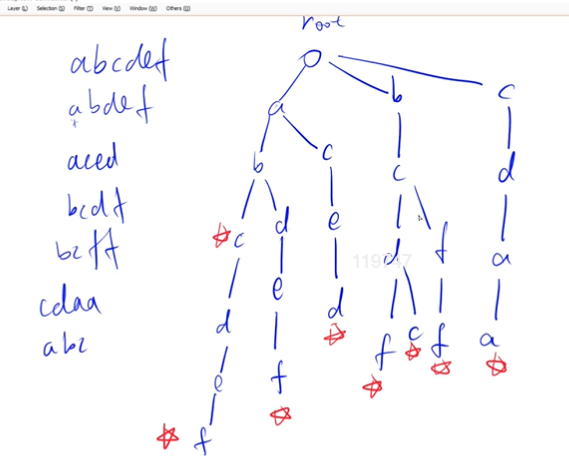 Layer (L) Selection (S) Filter (T) View (V) Window (W) Others (O)
root
abcdef
abdef
aced
bcdf
bcff
cdaa
abc
a b c
b c c d
c d e d f a
d e d f c f a
e f
f